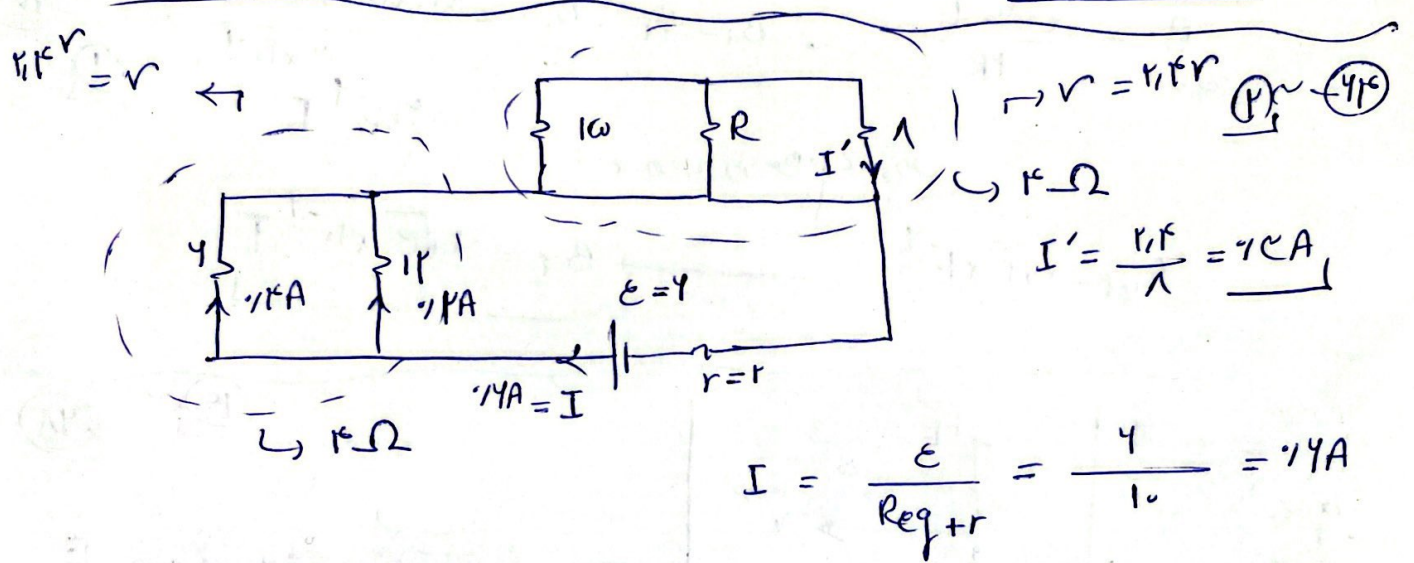 ۲٫۴V = V ←
→ V = ۲٫۴V ۲ ~ ۶۴
۱۵ R ۸
I′
↳ ۴Ω
I′ = ۲٫۴ / ۸ = ۰٫۳A
۶ ۰٫۴A ۱۲ ۰٫۲A
ε = ۶
r = ۲
۰٫۶A = I
↳ ۴Ω
I = ε / Req + r = ۶ / ۱۰ = ۰٫۶A